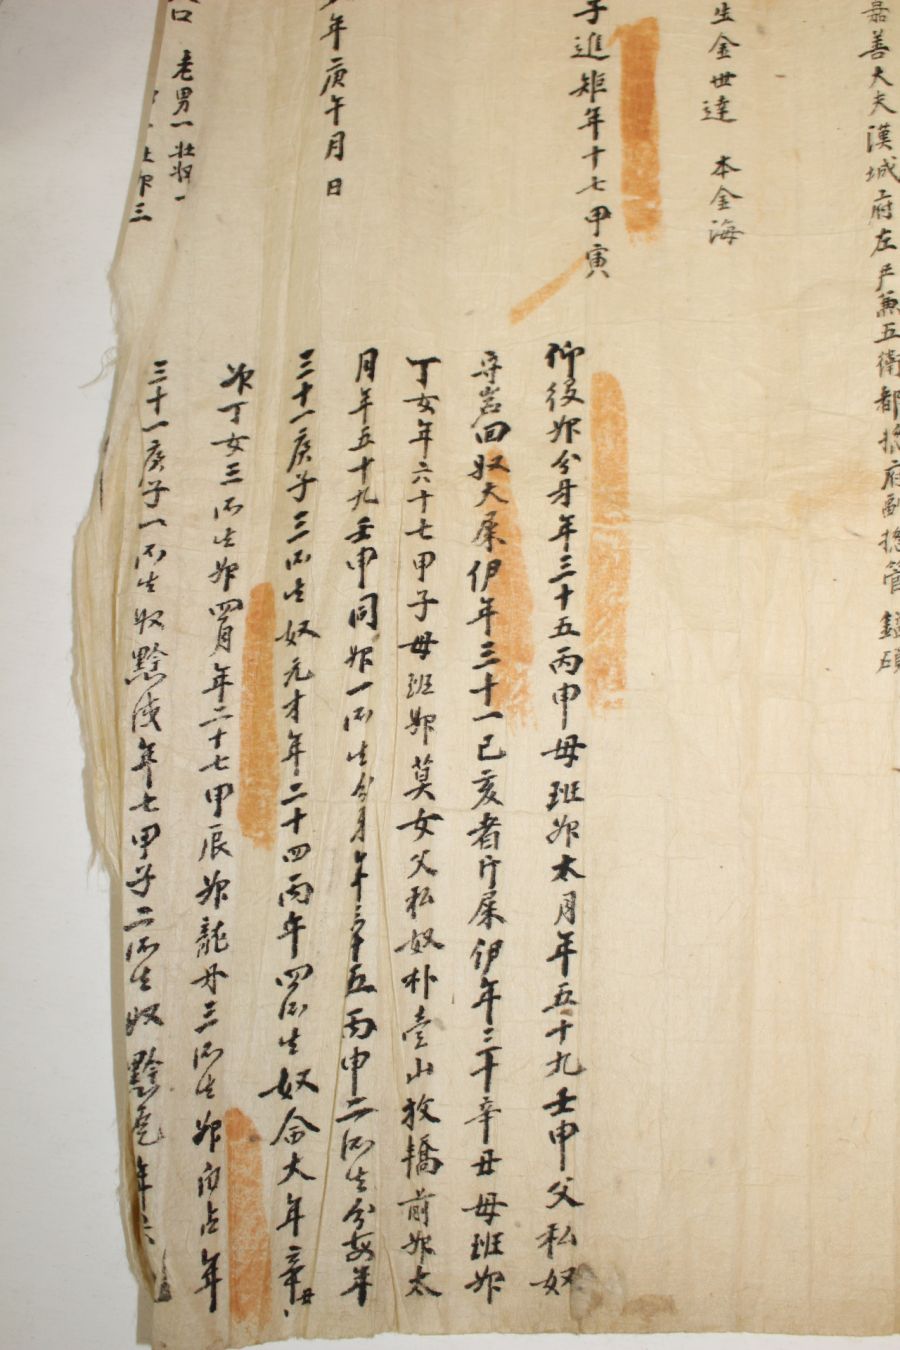 嘉善大夫漢城府左尹兼五衛都摠府副摠管
生金世達 本金海
子進矩年十七甲寅
仰役婢分丹年三十五丙申母班婢太月年五十九壬申父私奴
回奴大屎伊年三十一已亥者斤屎伊年三十辛丑母班婢
丁女年六十七甲子母班婢莫女父私奴朴山放矯前婢太
月年五十九壬申同婢一所生分月年三十五丙申二所生分每年
三十一庚子三所生奴元才年二十四丙午四所生奴命大年辛丑
次丁女三所生婢四月年二十七甲辰婢龍丹三所生婢占年
三十一庚子一所生奴年七甲子二所生奴年六
年庚午月日
口 老男一壯奴一
婢三